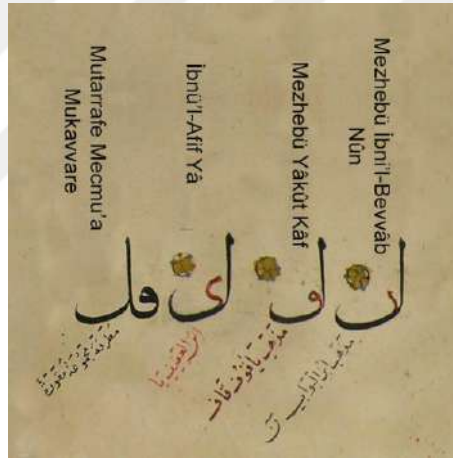 Mezhebü İbni'l-Bevvâb
Nûn
Mezhebü Yâkût Kâf
İbnü'l-Afif Yâ
Mutarrafe Mecmu'a
Mukavvare
مذهب ابن البواب ن
مذهب ياقوت قاف
ابن العفيف يا
مطرفة مجموعة مقورة